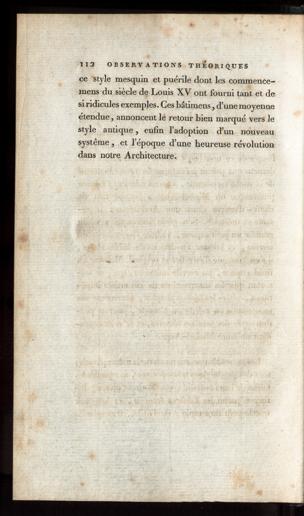 112 OBSERVATIONS THÉORIQUES
ce style mesquin et puérile dont les commence-
mens du siècle de Louis XV ont fourni tant et de
si ridicules exemples. Ces bâtimens, d'une moyenne
étendue, annoncent le retour bien marqué vers le
style antique, enfin l'adoption d'un nouveau
système, et l'époque d'une heureuse révolution
dans notre Architecture.